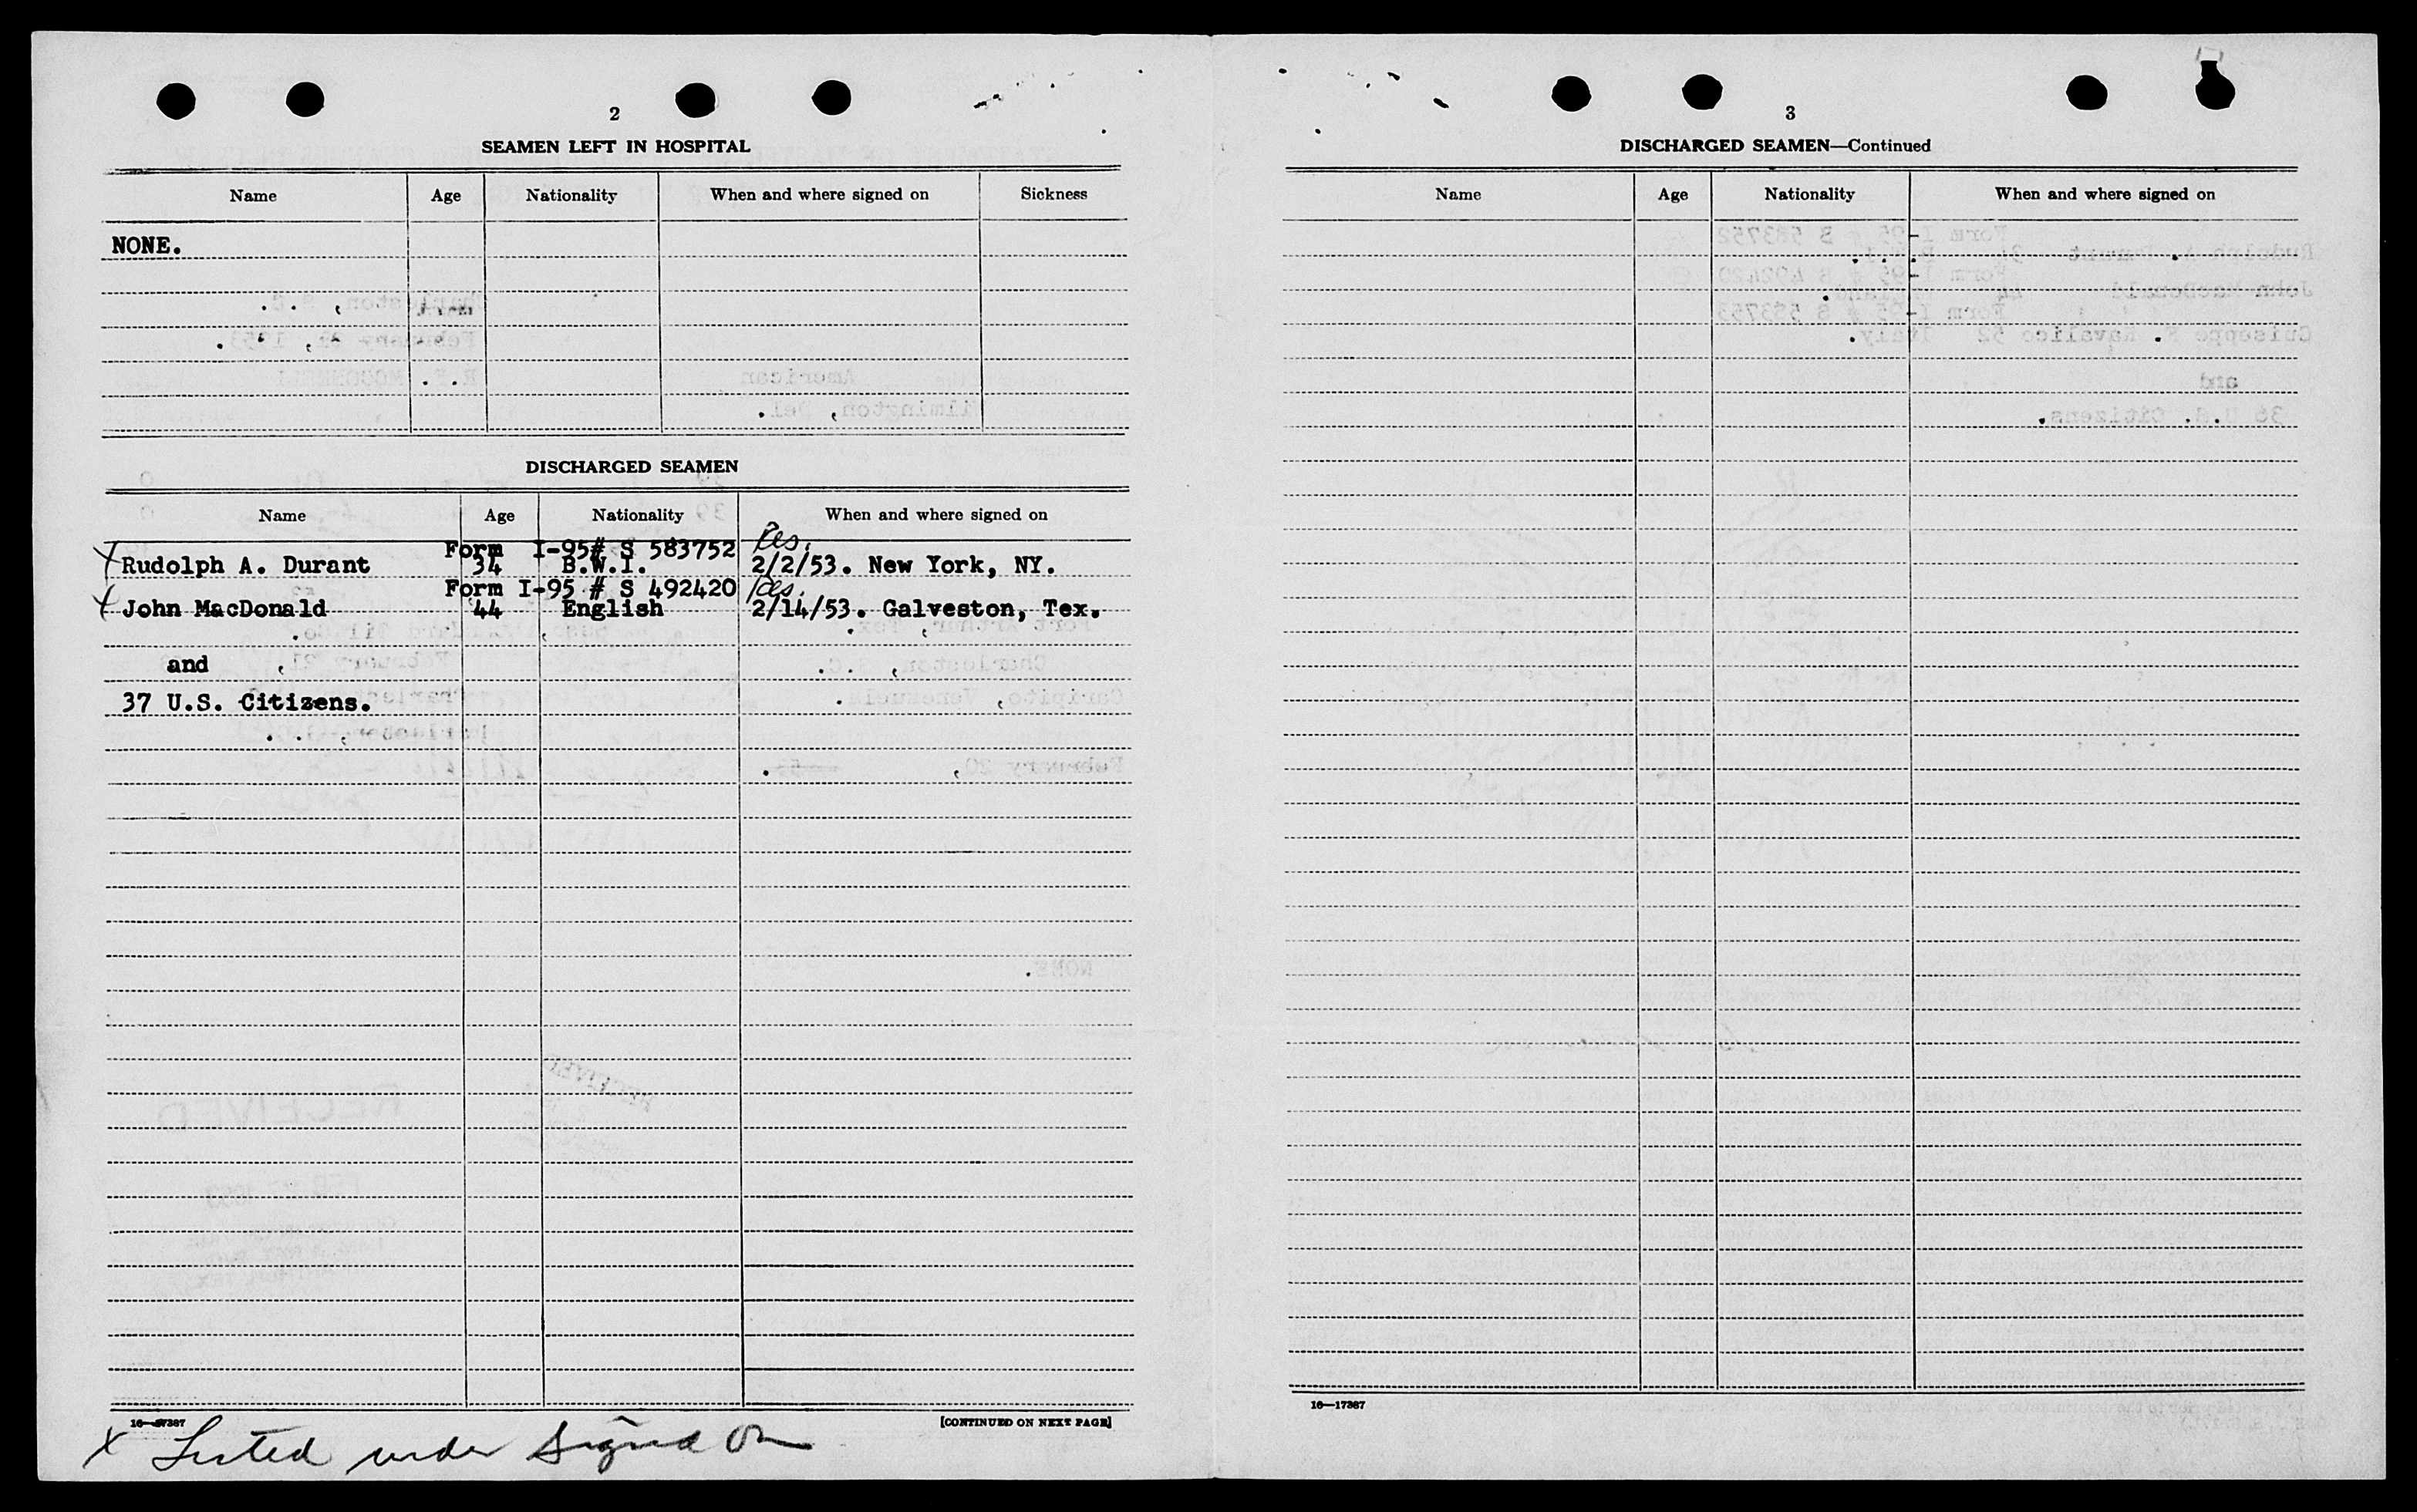 2
SEAMEN LEFT IN HOSPITAL
Name Age Nationality When and where signed on Sickness
NONE.
DISCHARGED SEAMEN
Name Age Nationality When and where signed on
Form I-95# S 583752
X Rudolph A. Durant 34 B.W.I. 2/2/53. New York, NY.
Form I-95 # S 492420
X John MacDonald 44 English 2/14/53. Galveston, Tex.
and
37 U.S. Citizens.
16—17367
[CONTINUED ON NEXT PAGE]
X Listed under Signed On
3
DISCHARGED SEAMEN—Continued
Name Age Nationality When and where signed on
16—17367